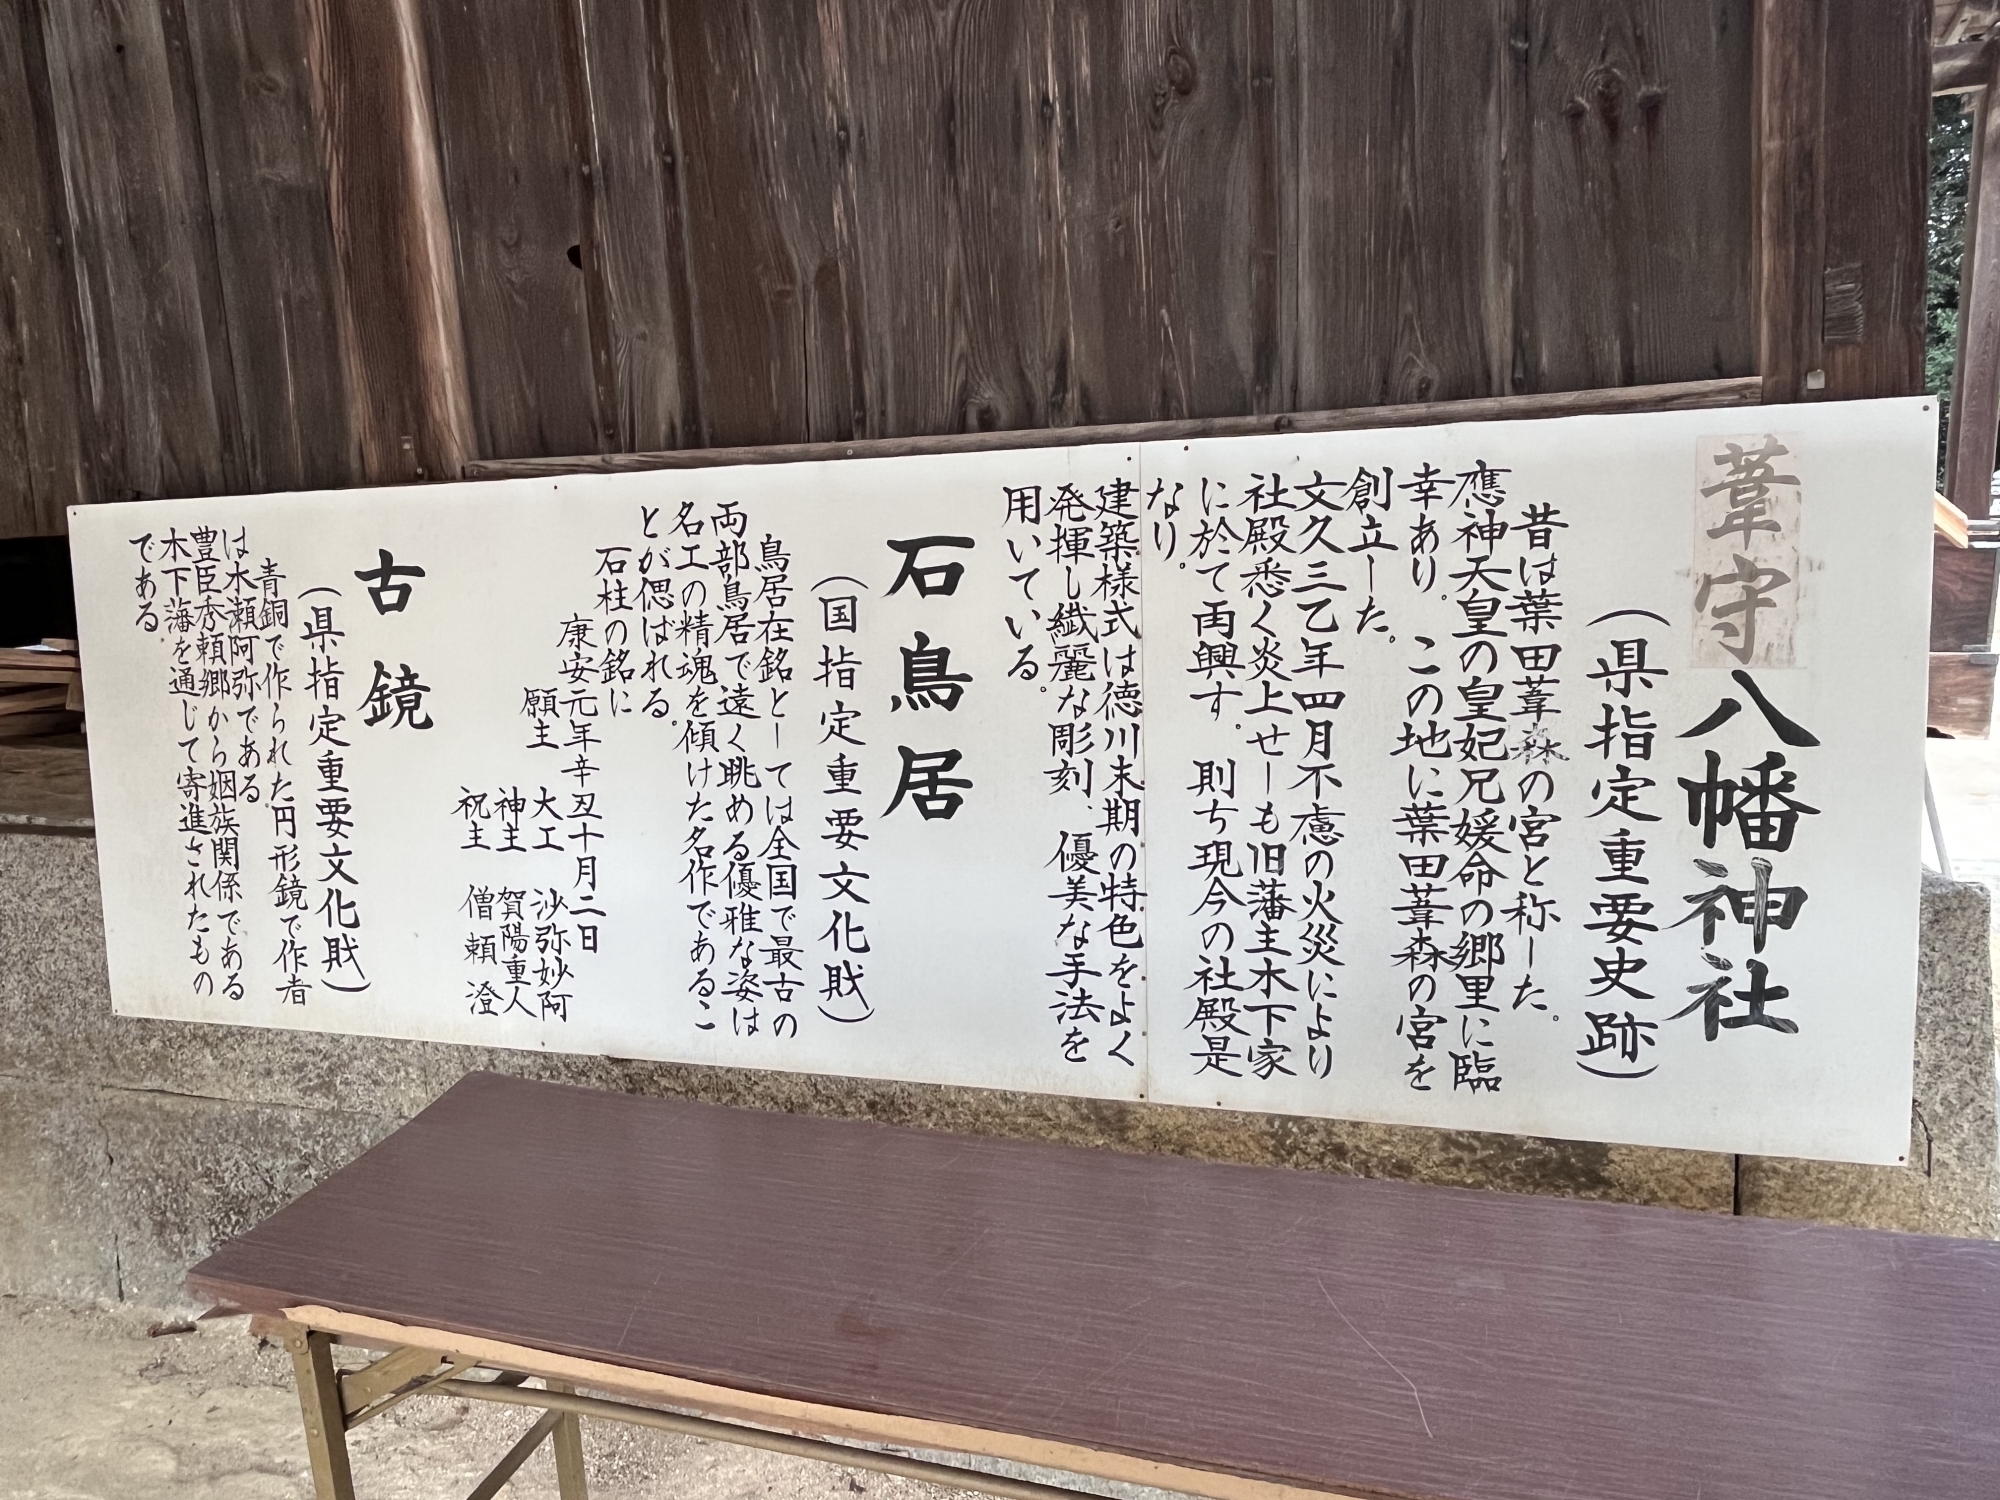 葦守八幡神社
（県指定重要史跡）
昔は葉田葦森の宮と称した。
應神天皇の皇妃兄媛命の郷里に臨
幸あり。この地に葉田葦森の宮を
創立した。
文久三乙年四月不慮の火災により
社殿悉く炎上せしも旧藩主木下家
に於て再興す。則ち現今の社殿是
なり。
建築様式は徳川末期の特色をよく
発揮し繊麗な彫刻、優美な手法を
用いている。
石鳥居
（国指定重要文化財）
鳥居在銘としては全国で最古の
両部鳥居で遠く眺める優雅な姿は
名工の精魂を傾けた名作であるこ
とが偲ばれる。
石柱の銘に
康安元年辛丑十月二日
願主 大工 沙弥妙阿
神主 賀陽重人
祝主 僧頼澄
古鏡
（県指定重要文化財）
青銅で作られた円形鏡で作者
は水瀬阿弥である。
豊臣秀頼郷から姻族関係である
木下藩を通じて寄進されたもの
である。